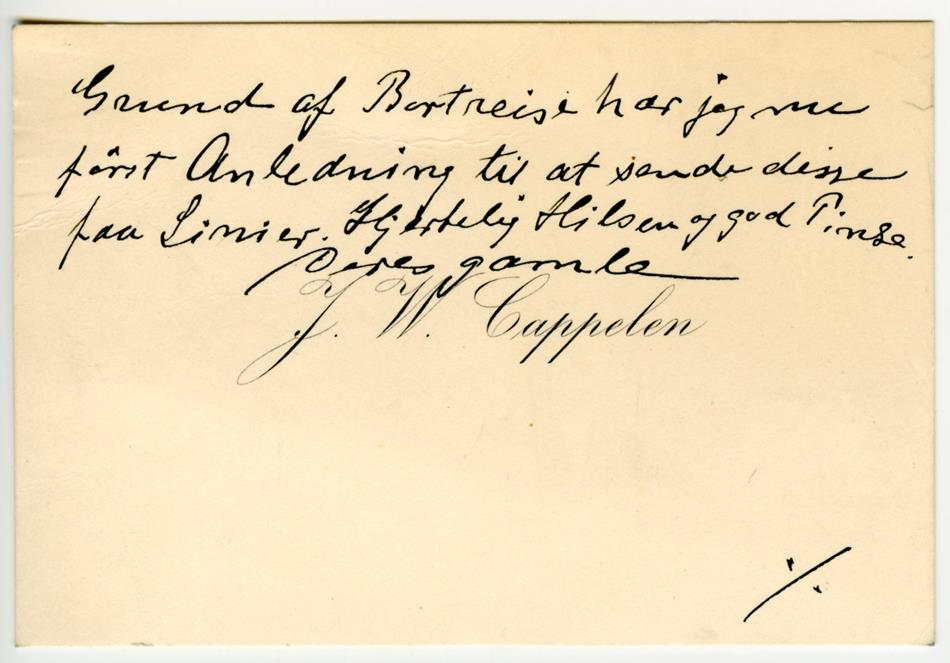 Grund af Bortreise har jeg nu
først Anledning til at sende disse
faa Linier. Hjertelig Hilsen og god Pinse.
Deres gamle
J. W. Cappelen
./.